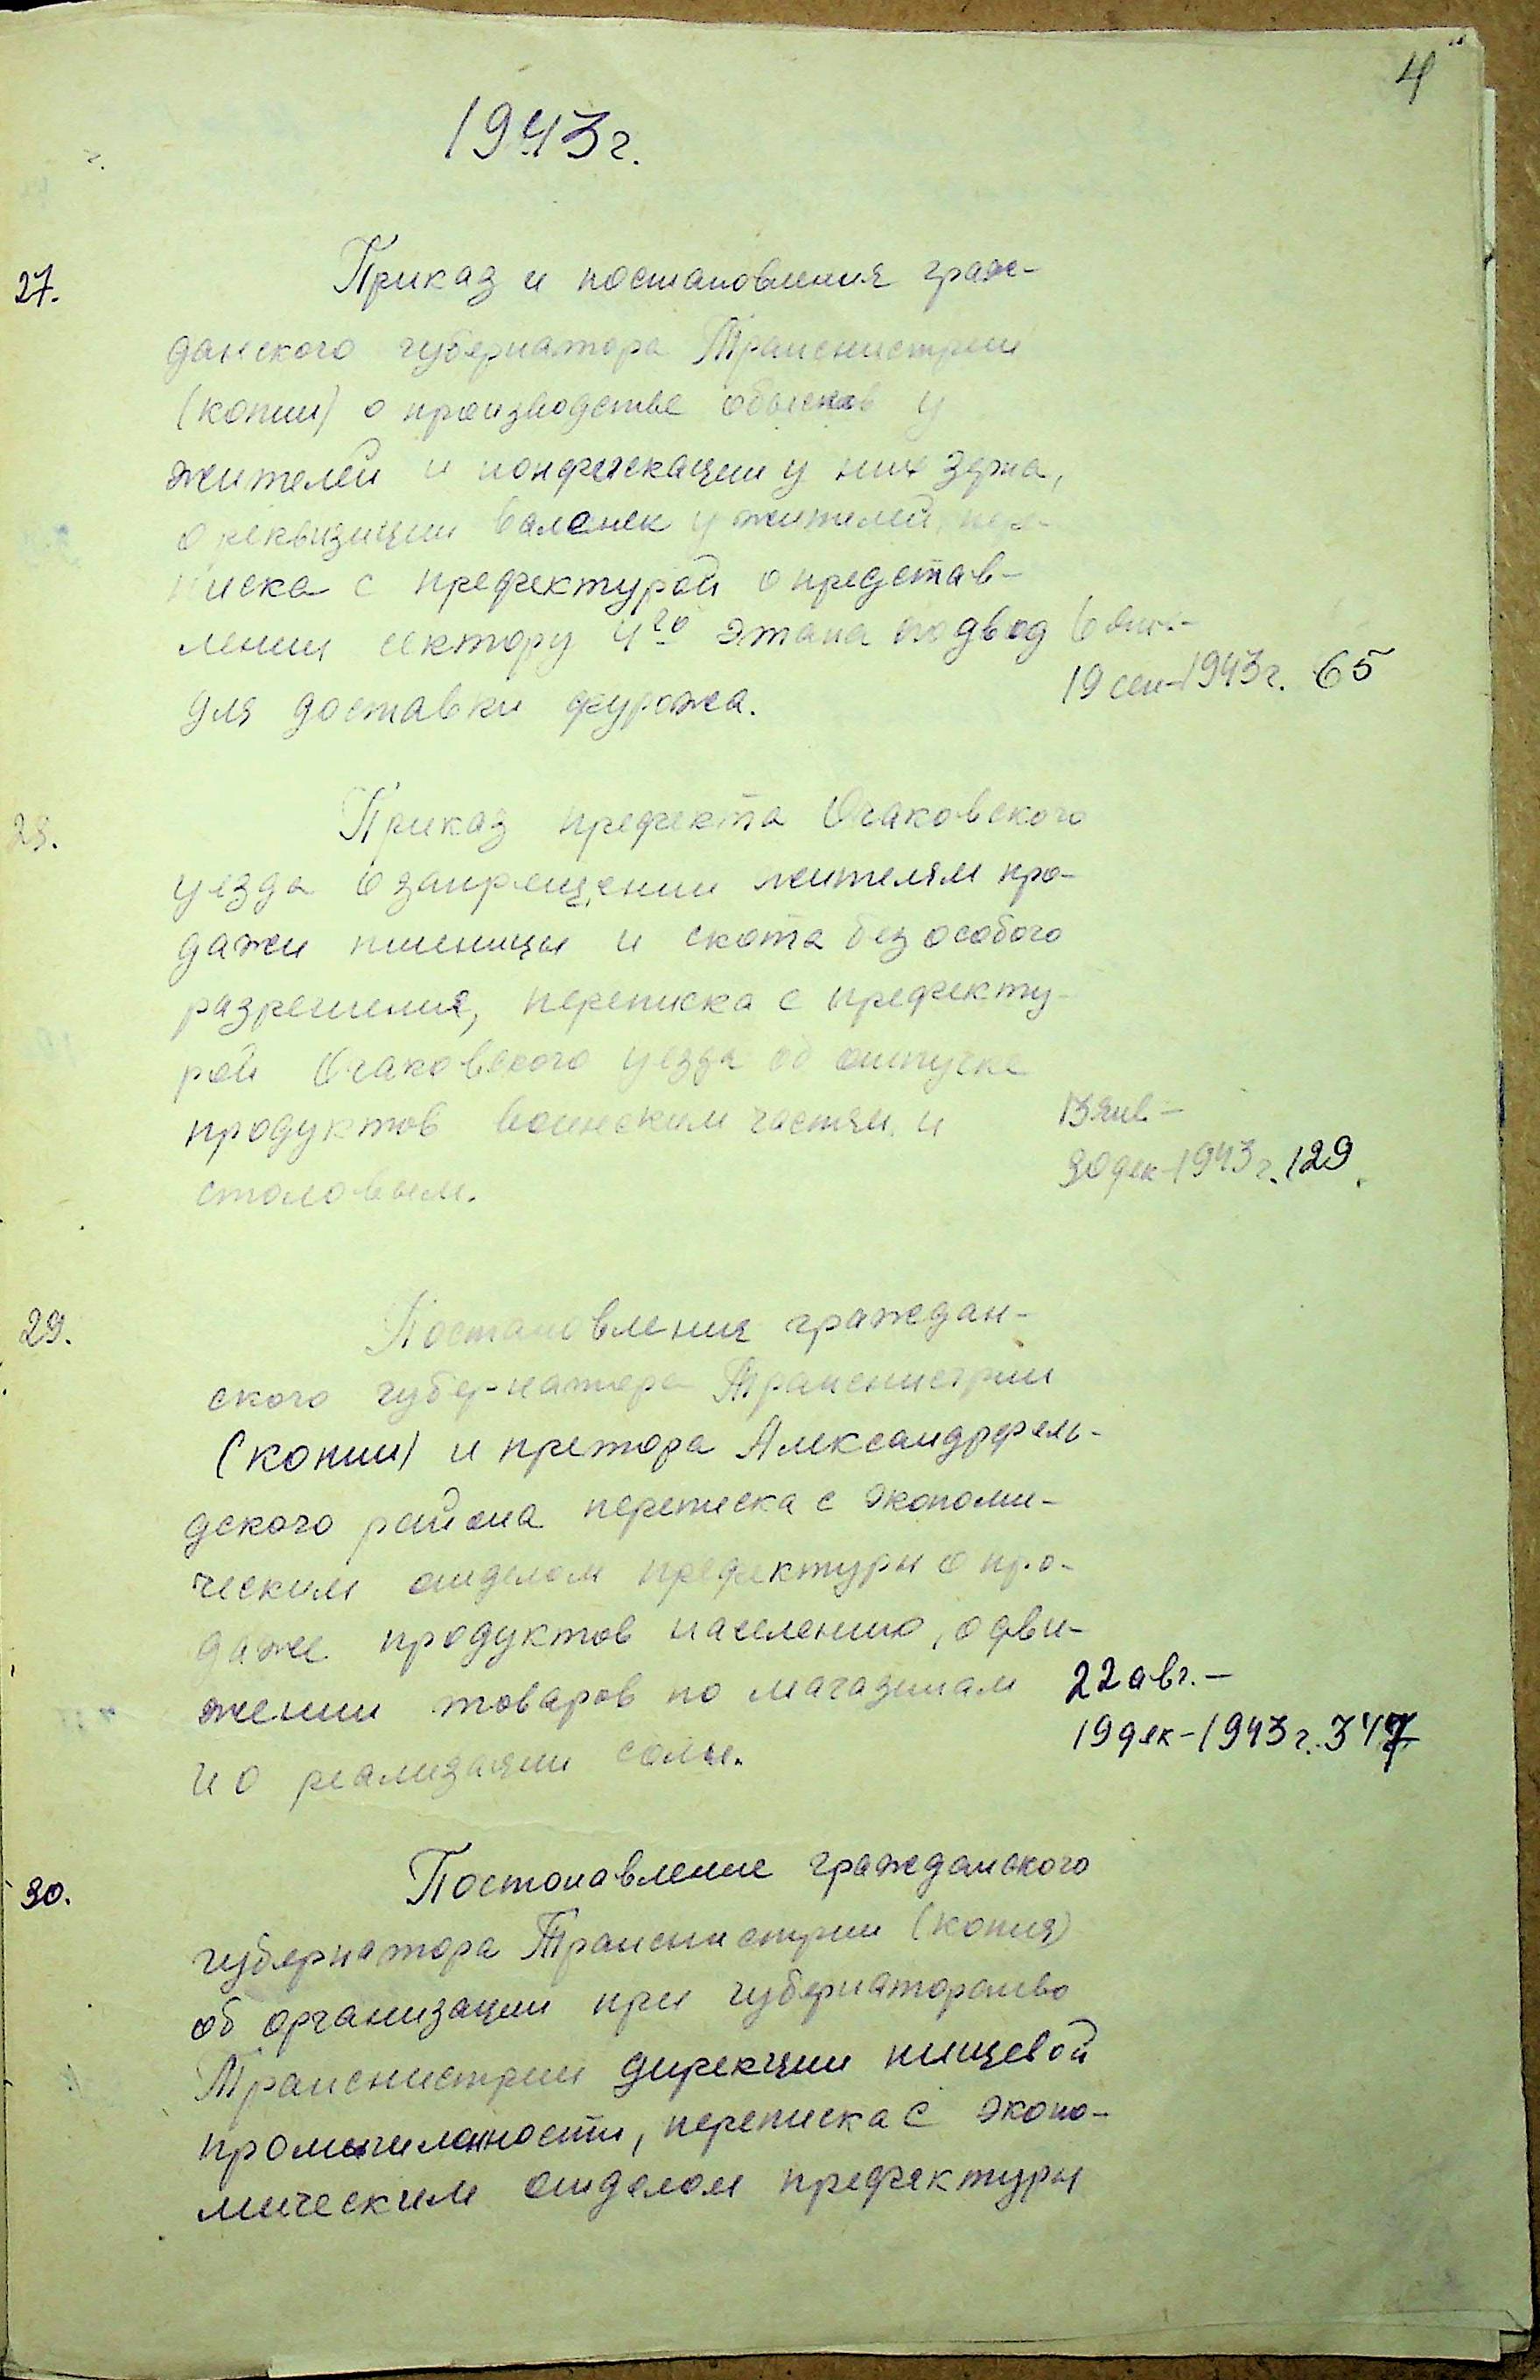 4
1943 г.
27. Приказ и постановления граж-
данского губернатора Транснистрии
(копии) о производстве обысков у
жителей и конфискации у них зерна,
о реквизиции валенек у жителей, пере-
писка с префектурой о представ-
лении сектору 4го этапа подвод
для доставки фуража. 19 сен-1943г. 65
28. Приказ префекта Очаковского
уезда о запрещении жителям про-
дажи пшеницы и скота без особого
разрешения, переписка с префекту-
рой Очаковского уезда об отпуске
продуктов воинским частям и 13 янв-
столовым. 30 дек-1943 г. 129
29. Постановления граждан-
ского губернатора Транснистрии
(копии) и претора Александрфель-
дского района переписка с экономи-
ческим отделом префектуры о про-
даже продуктов населению, о дви-
жении товаров по магазинам 22 авг.-
и о реализации соли. 19 дек-1943 г. 347
30. Постановление гражданского
губернатора Транснистрии (копия)
об организации при губернаторство
Транснистрии дирекции пищевой
промышленности, переписка с эконо-
мическим отделом префектуры